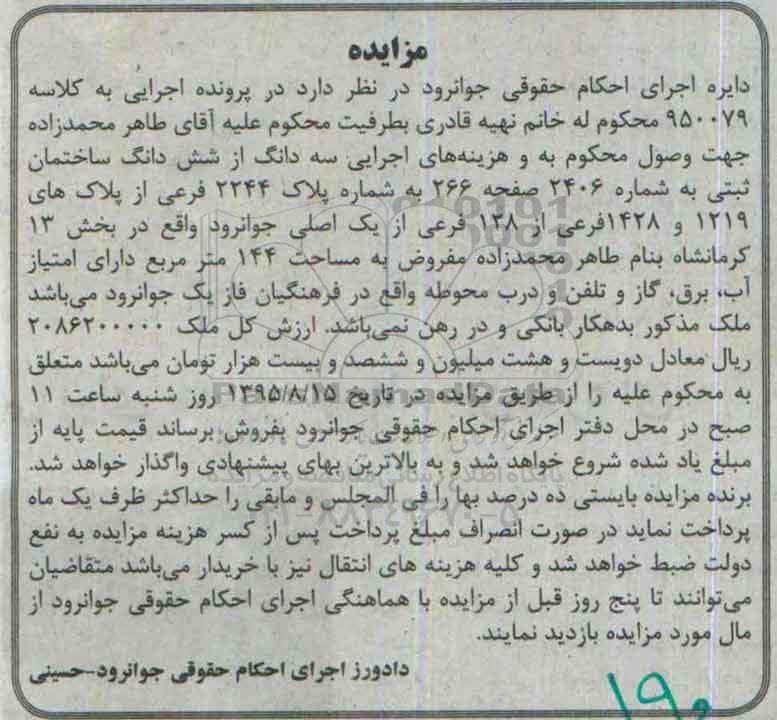 مزایده
دایره اجرای احکام حقوقی جوانرود در نظر دارد در پرونده اجرایی به کلاسه
۹۵۰۰۷۹ محکوم له خانم نهیه قادری بطرفیت محکوم علیه آقای طاهر محمدزاده
جهت وصول محکوم به و هزینه‌های اجرایی سه دانگ از شش دانگ ساختمان
ثبتی به شماره ۲۴۰۶ صفحه ۲۶۶ به شماره پلاک ۲۲۴۴ فرعی از پلاک های
۱۲۱۹ و ۱۴۲۸فرعی از ۱۲۸ فرعی از یک اصلی جوانرود واقع در بخش ۱۳
کرمانشاه بنام طاهر محمدزاده مفروض به مساحت ۱۴۴ متر مربع دارای امتیاز
آب، برق، گاز و تلفن و درب محوطه واقع در فرهنگیان فاز یک جوانرود می‌باشد
ملک مذکور بدهکار بانکی و در رهن نمی‌باشد. ارزش کل ملک ۲۰۸۶۲۰۰۰۰۰
ریال معادل دویست و هشت میلیون و ششصد و بیست هزار تومان می‌باشد متعلق
به محکوم علیه را از طریق مزایده در تاریخ ۱۳۹۵/۸/۱۵ روز شنبه ساعت ۱۱
صبح در محل دفتر اجرای احکام حقوقی جوانرود بفروش برساند قیمت پایه از
مبلغ یاد شده شروع خواهد شد و به بالاترین بهای پیشنهادی واگذار خواهد شد.
برنده مزایده بایستی ده درصد بها را فی المجلس و مابقی را حداکثر ظرف یک ماه
پرداخت نماید در صورت انصراف مبلغ پرداخت پس از کسر هزینه مزایده به نفع
دولت ضبط خواهد شد و کلیه هزینه های انتقال نیز با خریدار می‌باشد متقاضیان
می‌توانند تا پنج روز قبل از مزایده با هماهنگی اجرای احکام حقوقی جوانرود از
مال مورد مزایده بازدید نمایند.
دادورز اجرای احکام حقوقی جوانرود-حسینی